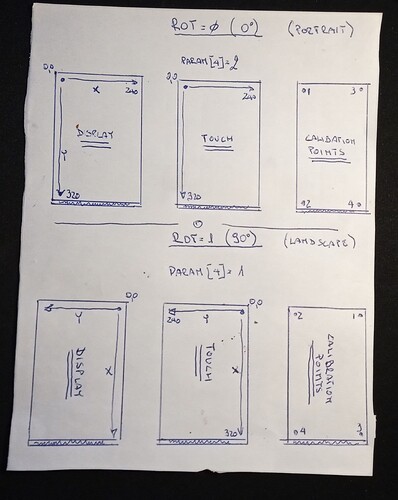 ROT=0 (0°) (PORTRAIT)
PARAM[4]=2
0,0
0,0
X 240
240
1 3
DISPLAY
TOUCH
CALIBRATION
POINTS
Y
320
320
2 4
ROT=1 (90°) (LANDSCAPE)
PARAM[4]=1
0,0
0,0
Y
240 Y
2 1
DISPLAY
X
TOUCH
X
CALIBRATION
POINTS
320
4 3